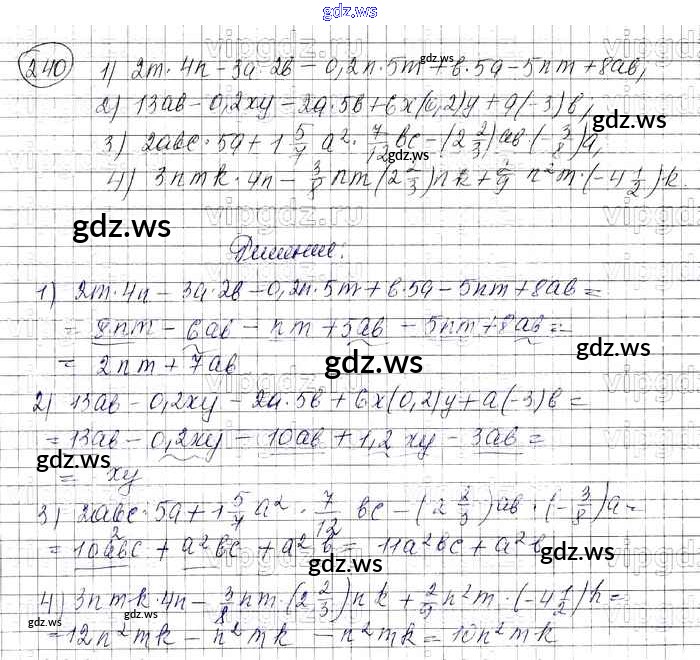 gdz.ws
240 1) 2m·4n - 3a·2b - 0,2n·5m + b·5a - 5nm + 8ab,
2) 13ab - 0,2xy - 2a·5b + 6x(0,2)y + a(-3)b,
3) 2abc·5a + 1 5/7 a²· 7/12 bc - (2 2/3)ab·(-3/8)a,
4) 3nmk·4n - 3/8 nm(2 2/3)nk + 2/9 n²m·(-4 1/2)·k.
Решение:
1) 2m·4n - 3a·2b - 0,2n·5m + b·5a - 5nm + 8ab =
= 8nm - 6ab - nm + 5ab - 5nm + 8ab =
= 2nm + 7ab
2) 13ab - 0,2xy - 2a·5b + 6x(0,2)y + a(-3)b =
= 13ab - 0,2xy - 10ab + 1,2xy - 3ab =
= xy
3) 2abc·5a + 1 5/7 a² · 7/12 bc - (2 2/3)ab·(-3/8)a =
= 10a²bc + a²bc + a²b = 11a²bc + a²b
4) 3nmk·4n - 3/8 nm·(2 2/3)nk + 2/9 n²m·(-4 1/2)k =
= 12n²mk - n²mk - n²mk = 10n²mk